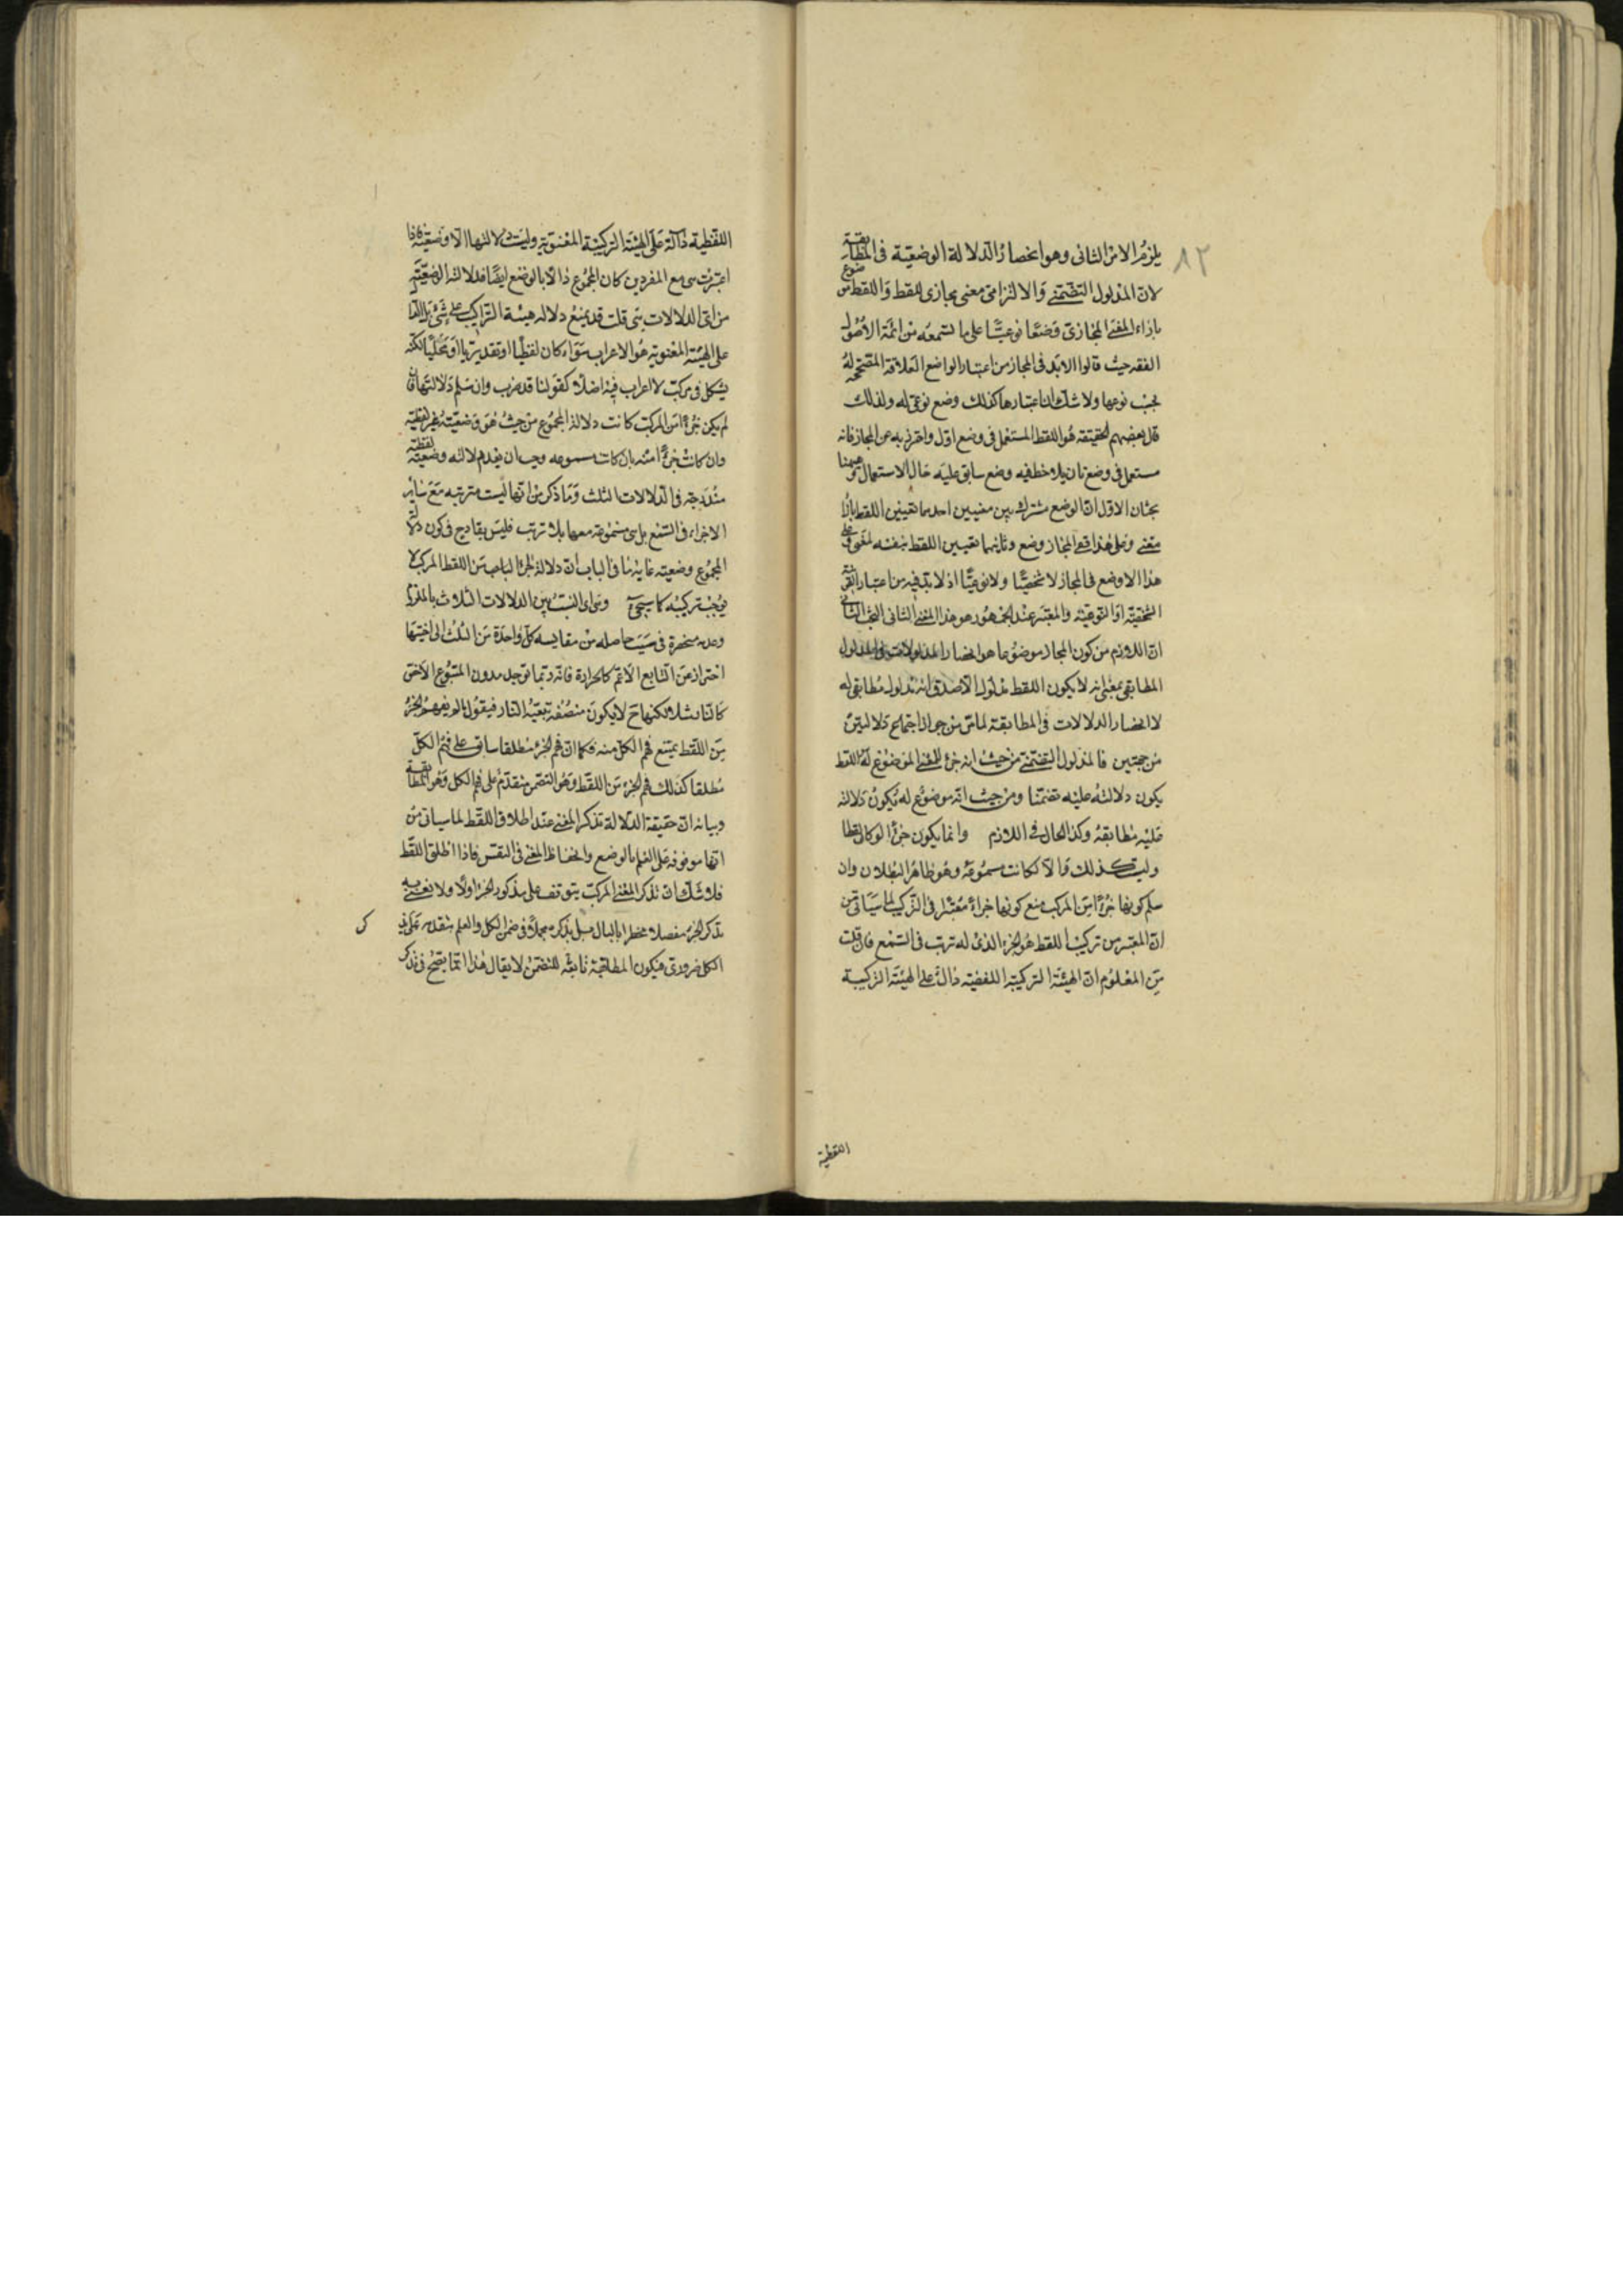 ٨٢
يلزم الامر الثانى وهو انحصار الدلالة الوضعية فى المطابقة
لان المدلول التضمنى والالتزامى معنى مجازى للفظ واللفظ موضوع
بازاء المعنى المجازى وضعا نوعيا على ما تسمعه من ائمة الاصول
الفقه حيث قالوا لابد فى المجاز من اعتبار الواضع العلاقة المصححة له
بحسب نوعها ولا شك ان اعتبارها كذلك وضع نوعى له ولذلك
قال بعضهم الحقيقة هو اللفظ المستعمل فى وضع اول واحترز به عن المجاز فانه
مستعمل فى وضع ثان يلاحظ فيه وضع سابق عليه حال الاستعمال وههنا
بحثان الاول ان الوضع مشترك بين معنيين احدهما تعيين اللفظ بازاء
معنى وعلى هذا ففى المجاز وضع وثانيهما تعيين اللفظ بنفسه لمعنى فعلى
هذا لا وضع فى المجاز لا شخصيا ولا نوعيا اذ لا بد فيه من اعتبار القرينة
الشخصية او النوعية والمعتبر عند الجمهور هو هذا المعنى الثانى البحث الثانى
ان اللازم من كون المجاز موضوعا هو انحصار المدلولات فى المدلول
المطابقى بمعنى انه لا يكون اللفظ مدلول الا صدق انه مدلول مطابقى له
لا انحصار الدلالات فى المطابقة لما من جواز اجتماع دلالتين
من جهتين فالمدلول التضمنى من حيث انه جزء للمعنى الموضوع له اللفظ
يكون دلالته عليه تضمنا ومن حيث انه موضوع له يكون دلالته
عليه مطابقة وكذا الحال فى اللازم وانما يكون جزءا لو كان لفظا
وليت كذلك والا لكانت مسموعة وهو ظاهر البطلان وان
سلم كونها جزءا من المركب منع كونها جزاء معتبرا فى التركيب لما سياتى من
ان المعتبر من تركيب اللفظ هو الجزء الذى له ترتب فى السمع فان قلت
من المعلوم ان الهيئة التركيبية اللفظية دالة على الهيئة التركيبية
اللفظية
اللفظية دالة على الهيئة التركيبية المعنوية وليست دلالتها الا وضعية فاذا
اعتبرت هى مع المفردين كان المجموع دالا بالوضع ايضا فدلالته الوضعية
من اى الدلالات هى قلت قد يمنع دلالة هيئة التراكيب على شئ بل الدال
على الهيئة المعنوية هو الاعراب سواء كان لفظيا او تقديريا او محليا لكنه
يشكل فى مركب لا اعراب فيه اصلا كقولنا قد ضرب وان سلم دلالتها فان
لم يكن جزءا من المركب كانت دلالة المجموع من حيث هو وضعية غير لفظية
وان كانت جزءا منه بان كانت مسموعه وجب ان يقدم لالته وضعية لفظية
مندرجة فى الدلالات الثلث وما ذكر من انها ليست مترتبه مع ساير
الاجزاء فى السمع بل هى مسموعة معها بلا ترتب فليس بقادح فى كون دلالة
المجموع وضعيته غاية ما فى الباب ان دلالة الجزء من اللفظ المركب لا
يوجب تركيبه كما سيجئ وهى اى النسب بين الدلالات الثلاث باللزوم
وعدمه منحصرة فى ستة حاصله من مقايسه كل واحدة من الثلث الى اختيها
احتراز عن التابع الاعم كالحرارة فانه ربما توجد بدون المتبوع الاخص
كالنار مثلا لكنها ح لا يكون متصفة بتبعية النار فيقول لو فهم الجزء
من اللفظ يمتنع فهم الكل منه فكما ان فهم الجزء مطلقا سابق على فهم الكل
مطلقا كذلك فهم الجزء من اللفظ وهو التضمن متقدم على فهم الكل وهو المطابقة
وبيانه ان حقيقة الدلالة تذكر المعنى عند اطلاق اللفظ لما سياتى من
انها موقوفة على العلم بالوضع وانحفاظ المعنى فى النفس فاذا اطلق اللفظ
فلا شك ان تذكر المعنى المركب يتوقف على تذكر الجزء اولا ولا نعنى به
تذكر الجزء مفصلا مخطرا بالبال بل تذكره مجملا فى ضمن الكل والعلم بتقدمه على
الكل ضرورى فيكون المطابقة تابعة للتضمن لا يقال هذا انما يصح فى تذكر